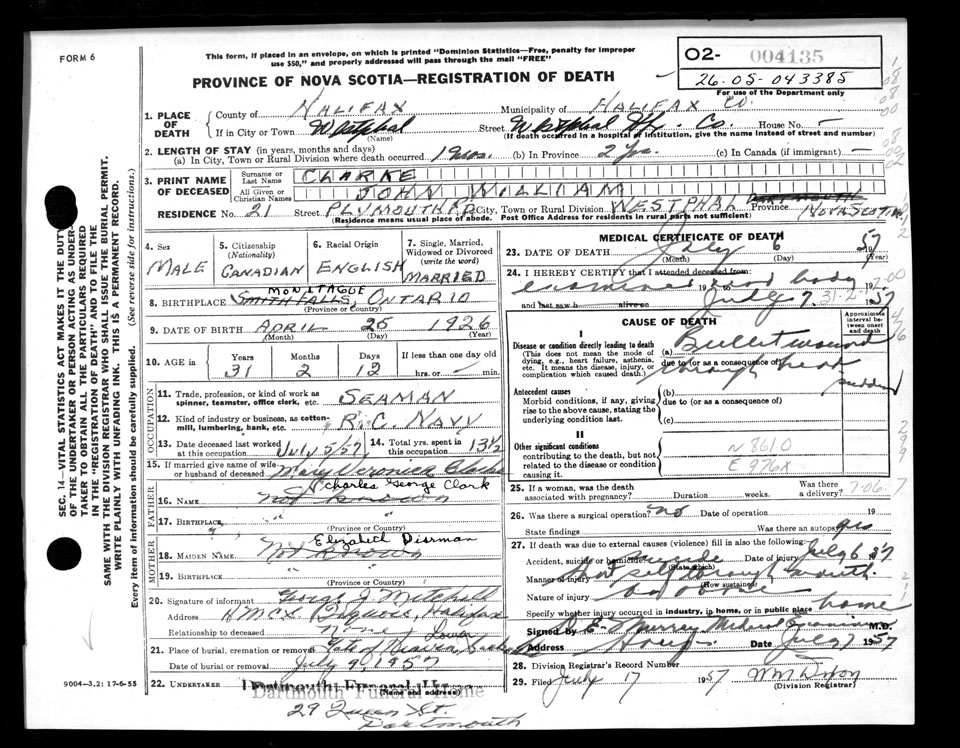 FORM 6
This form, if placed in an envelope, on which is printed "Dominion Statistics—Free, penalty for improper
use $50," and properly addressed will pass through the mail "FREE"
PROVINCE OF NOVA SCOTIA—REGISTRATION OF DEATH
O2- 004135
26-05-043385
For use of the Department only
1. PLACE OF DEATH
County of HALIFAX Municipality of HALIFAX CO.
If in City or Town Westphal (Name) Street Westphal Hfx. Co. House No. —
(If death occurred in a hospital or institution, give the name instead of street and number)
2. LENGTH OF STAY (in years, months and days)
(a) In City, Town or Rural Division where death occurred (b) In Province 2 yrs. (c) In Canada (if immigrant) —
3. PRINT NAME OF DECEASED
Surname or Last Name CLARKE
All Given or Christian Names JOHN WILLIAM
RESIDENCE No. 21 Street PLYMOUTH RD City, Town or Rural Division WESTPHAL DARTMOUTH Province NOVA SCOTIA
Residence means usual place of abode. Post Office Address for residents in rural parts not sufficient)
4. Sex MALE
5. Citizenship (Nationality) CANADIAN
6. Racial Origin ENGLISH
7. Single, Married, Widowed or Divorced (write the word) MARRIED
8. BIRTHPLACE MONTAGUE SMITH FALLS, ONTARIO
(Province or Country)
9. DATE OF BIRTH APRIL 25 1926
(Month) (Day) (Year)
10. AGE in Years 31 Months 2 Days 12 If less than one day old hrs. or — min.
OCCUPATION
11. Trade, profession, or kind of work as spinner, teamster, office clerk, etc. SEAMAN
12. Kind of industry or business, as cotton-mill, lumbering, bank, etc. R.C. NAVY
13. Date deceased last worked at this occupation July 5/57
14. Total yrs. spent in this occupation 13½
15. If married give name of wife or husband of deceased Mary Veronica Clarke
FATHER
Charles George Clark
16. NAME Not Known
17. BIRTHPLACE " "
(Province or Country)
MOTHER
Elizabeth Pierman
18. MAIDEN NAME Not Known
19. BIRTHPLACE " "
(Province or Country)
20. Signature of informant George J Mitchell
Address HMCS Iroquois, Halifax
Relationship to deceased None
21. Place of burial, cremation or removal Gate of Heaven, Lower Sackville
Date of burial or removal July 9, 1957
22. UNDERTAKER Dartmouth Funeral Home
(Name and address)
29 Queen St.
Dartmouth
9004-3,2: 17-6-55
MEDICAL CERTIFICATE OF DEATH
23. DATE OF DEATH July 6 1957
(Month) (Day)
24. I HEREBY CERTIFY that I attended deceased from:
examined dead body
19 to July 7 1957
and last saw h alive on
CAUSE OF DEATH
Approximate interval between onset and death
I
Disease or condition directly leading to death
(This does not mean the mode of dying, e.g., heart failure, asthenia, etc. It means the disease, injury, or complication which caused death.)
(a) Bullet wound
due to (or as a consequence of)
through head
sudden
Antecedent causes
Morbid conditions, if any, giving rise to the above cause, stating the underlying condition last.
(b)
due to (or as a consequence of)
(c)
II
Other significant conditions
contributing to the death, but not related to the disease or condition causing it.
N 8610
E 976X
25. If a woman, was the death associated with pregnancy? Duration weeks. Was there a delivery?
26. Was there a surgical operation? no Date of operation 19
State findings Was there an autopsy yes
27. If death was due to external causes (violence) fill in also the following:
Accident, suicide or homicide Suicide (State which) Date of injury July 6 1957
Manner of injury Shot self through mouth.
(How sustained)
Nature of injury as above
Specify whether injury occurred in industry, in home, or in public place home
Signed by Murray Medical Examiner M.D.
Address Date July 7 1957
28. Division Registrar's Record Number
29. Filed July 17 1957 Wm Dixon
(Division Registrar)
SEC. 14—VITAL STATISTICS ACT MAKES IT THE DUTY
OF THE UNDERTAKER OR PERSON ACTING AS UNDER-
TAKER TO OBTAIN ALL THE PARTICULARS REQUIRED
IN THE "REGISTRATION OF DEATH" AND TO FILE THE
SAME WITH THE DIVISION REGISTRAR WHO SHALL ISSUE THE BURIAL PERMIT.
WRITE PLAINLY WITH UNFADING INK. THIS IS A PERMANENT RECORD.
Every item of information should be carefully supplied. (See reverse side for instructions.)